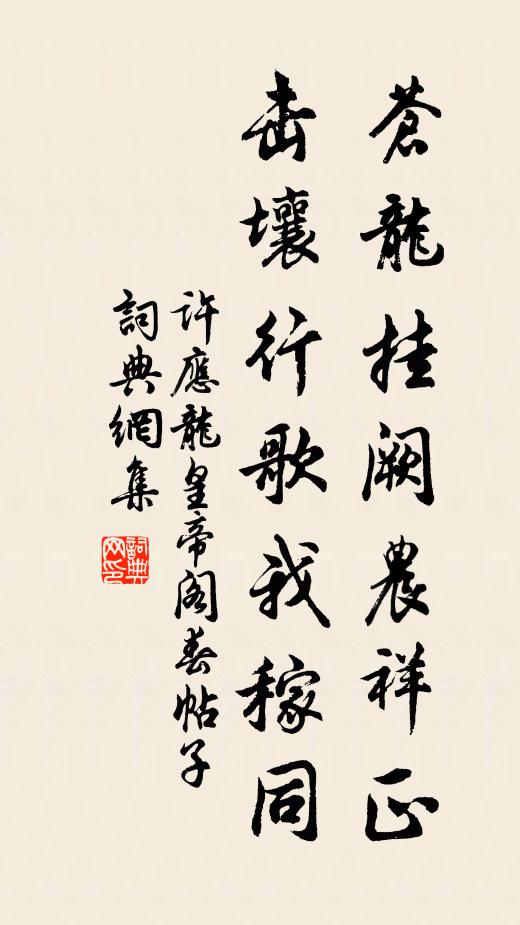 蒼龍挂闕農祥正
击壤行歌我稼同
許應龍皇帝阁春帖子
詞典網集
詞典網印